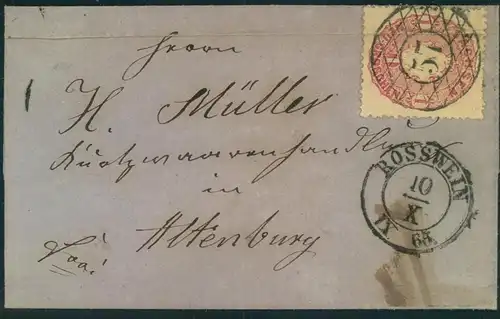 Herrn
57
H. Müller
Kurtzwaarenhandlung
in
Altenburg
ROSSWEIN
10
X
65